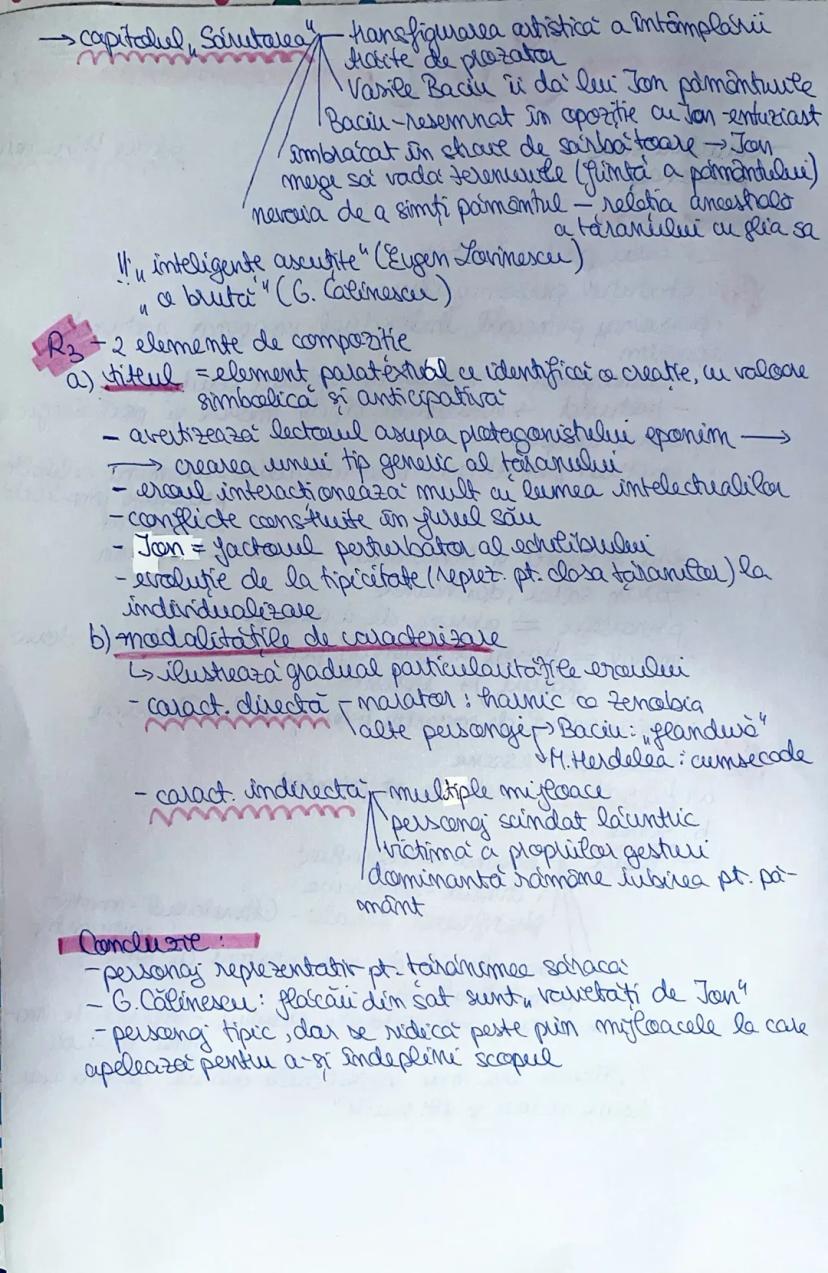 → capitolul „Sărutarea“ – transfigurarea artistică a întâmplării
trăite de prozator
Vasile Baciu îi dă lui Ion pământurile
Baciu-resemnat în opoziție cu Ion-entuziast
îmbrăcat în straie de sărbătoare → Ion
merge să vadă terenurile (ființă a pământului)
nevoia de a simți pământul – relația ancestrală
a țăranului cu glia sa
!! „inteligențe ascuțite“ (Eugen Lovinescu)
„o brută“ (G. Călinescu)
R3 – 2 elemente de compoziție
a) titlul = element paratextual ce identifică o creație, cu valoare
simbolică și anticipativă
- avertizează lectorul asupra protagonistului eponim →
→ crearea unui tip generic al țăranului
- eroul interacționează mult cu lumea intelectualilor
- conflicte construite în jurul său
- Ion = factorul perturbator al echilibrului
- evoluție de la tipicitate (reprez. pt. clasa țăranilor) la
individualizare
b) modalitățile de caracterizare
↳ ilustrează gradual particularitățile eroului
- caract. directă – narator: harnic ca Zenobia
alte personaje → Baciu: „flandură“
↘ M. Herdelea: cumsecade
- caract. indirectă – multiple mijloace
personaj scindat lăuntric
victimă a propriilor gesturi
dominantă rămâne iubirea pt. pă-
mânt
Concluzie:
- personaj reprezentativ pt. țărănimea săracă
- G. Călinescu: flăcăii din sat sunt „varietăți de Ion“
- personaj tipic, dar se ridică peste prin mijloacele la care
apelează pentru a-și îndeplini scopul